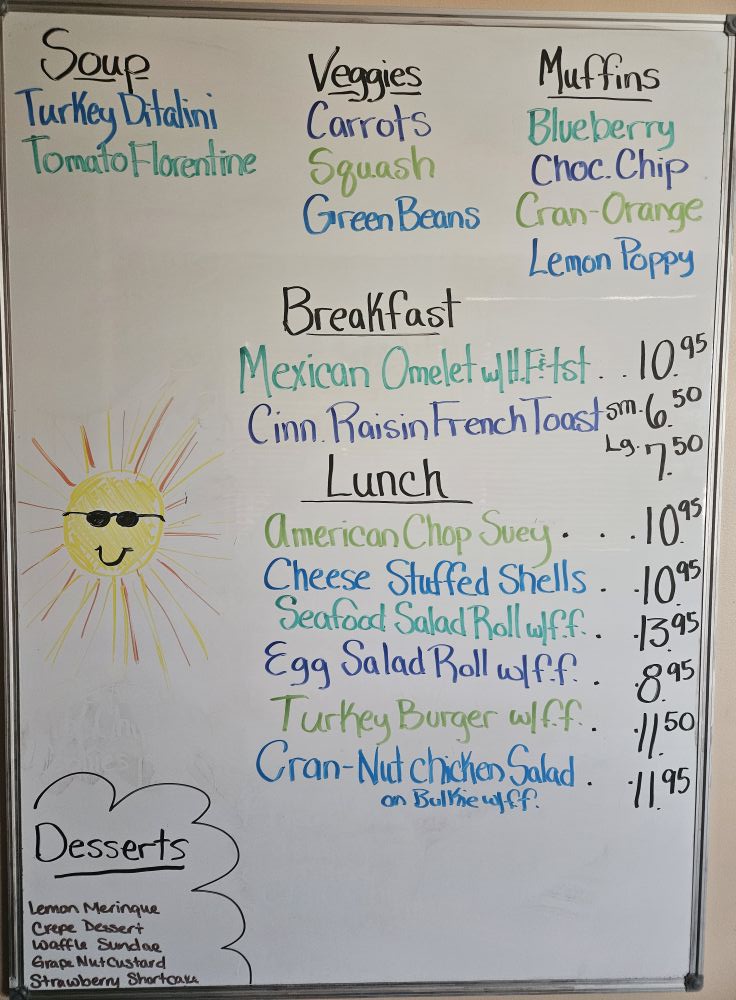 Soup
Turkey Ditalini
Tomato Florentine
Veggies
Carrots
Squash
Green Beans
Muffins
Blueberry
Choc. Chip
Cran-Orange
Lemon Poppy
Breakfast
Mexican Omelet w/H.F.&tst . . 10.95
Cinn. Raisin French Toast sm. 6.50
Lg. 7.50
Lunch
American Chop Suey . . . 10.95
Cheese Stuffed Shells . . 10.95
Seafood Salad Roll w/f.f. . . 13.95
Egg Salad Roll w/f.f. . . 8.95
Turkey Burger w/f.f. . . 11.50
Cran-Nut chicken Salad . . 11.95
on Bulkie w/f.f.
Desserts
Lemon Meringue
Crepe Dessert
Waffle Sundae
Grape Nut Custard
Strawberry Shortcake